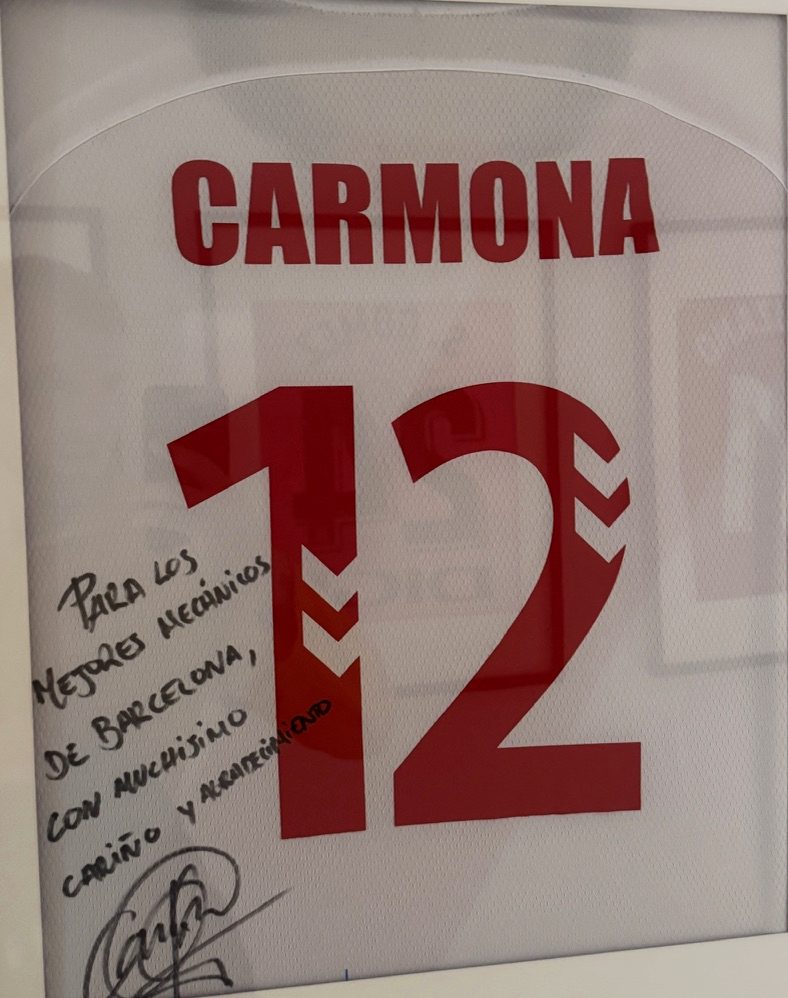 CARMONA
12
PARA LOS
MEJORES MECÁNICOS
DE BARCELONA,
CON MUCHISIMO
CARIÑO Y AGRADECIMIENTO